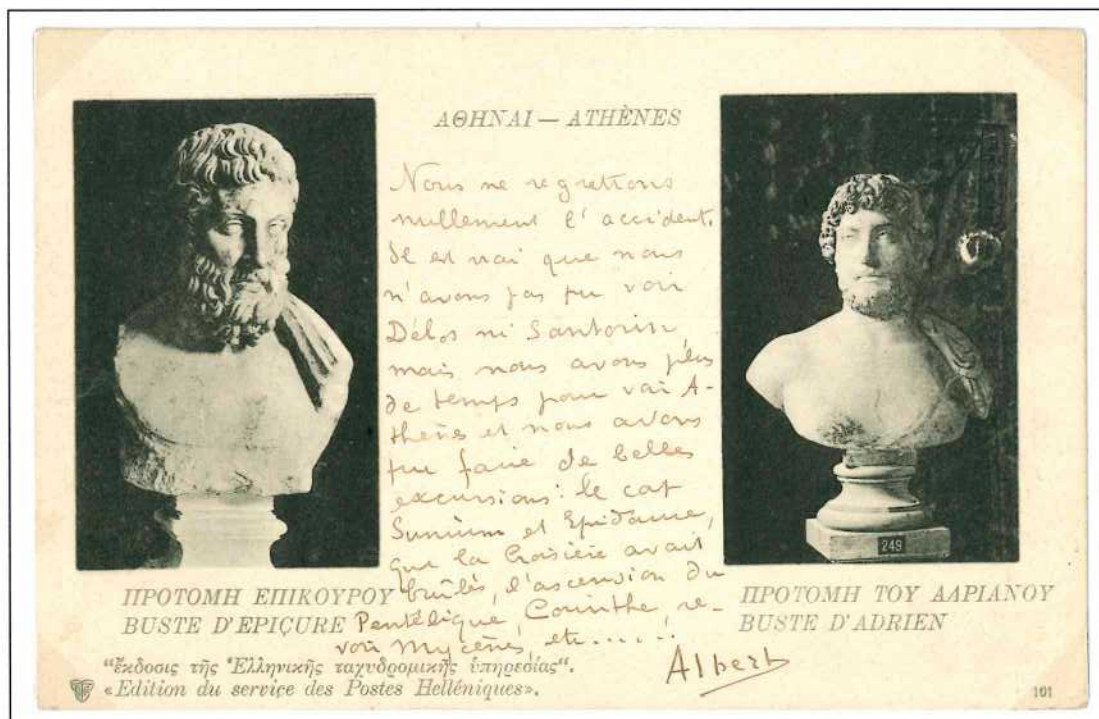 ΑΘΗΝΑΙ — ATHÈNES
Nous ne regrettons
nullement l'accident.
Il est vrai que nous
n'avons pas pu voir
Délos ni Santorin
mais nous avons plus
de temps pour voir A-
thènes et nous avons
pu faire de belles
excursions : le cap
Sunium et Epidaure,
que la Croisière avait
brûlés, l'ascension du
Pentélique, Corinthe, re-
voir Mycènes, etc.....!
Albert
249
ΠΡΟΤΟΜΗ ΕΠΙΚΟΥΡΟΥ
BUSTE D'EPIÇURE
ΠΡΟΤΟΜΗ ΤΟΥ ΑΔΡΙΑΝΟΥ
BUSTE D'ADRIEN
“ἔκδοσις τῆς Ἑλληνικῆς ταχυδρομικῆς ὑπηρεσίας“.
«Edition du serviçe des Postes Helléniques».
101